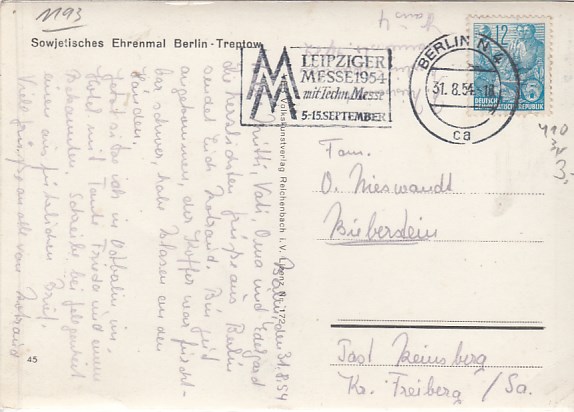 1193
Sowjetisches Ehrenmal Berlin-Treptow
Berlin, den 31.8.54
Mutti, Vati, Oma und
die herzlichsten Grüsse aus Berlin
sendet Euch Bin gut
angekommen, der Koffer war furcht-
bar schwer, habe Blasen an den
Händen.
Jetzt sitze ich in Ostbahn im
Hotel mit Tante Frieda und einem
Bekannten. Schreibe bei Gelegenheit
einen ausführlichen Brief.
Viele Grüsse an alle von
45
Volkskunstverlag Reichenbach i. V. Lizenz Nr. 172
LEIPZIGER
MESSE 1954
mit Techn. Messe
5.-15. SEPTEMBER
MM
BERLIN N 4
31.8.54.-18
ca
12
5
DEUTSCHE DEMOKRATISCHE REPUBLIK
410
3,-
Fam.
O. Nieswandt
Bieberstein
Post Reinsberg
Kr. Freiberg /Sa.